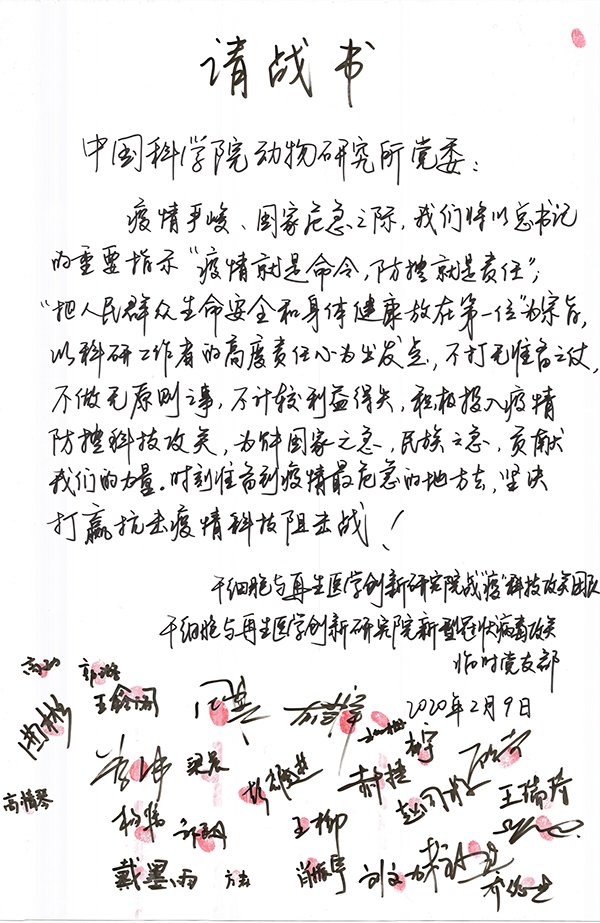 请战书
中国科学院动物研究所党委：
疫情严峻、国家危急之际，我们将以总书记
的重要指示“疫情就是命令，防控就是责任”；
“把人民群众生命安全和身体健康放在第一位”为宗旨，
以科研工作者的高度责任心为出发点，不打无准备之仗，
不做无原则之事，不计较利益得失，积极投入疫情
防控科技攻关，为解国家之急，民族之急，贡献
我们的力量。时刻准备到疫情最危急的地方去，坚决
打赢抗击疫情科技阻击战！
干细胞与再生医学创新研究院战“疫”科技攻关团队
干细胞与再生医学创新研究院新型冠状病毒攻关
临时党支部
2020年2月9日
周彬
梁昊
高精琴
杨伟
王柳
郝捷
王瑞琦
戴墨雨
方志
刘文